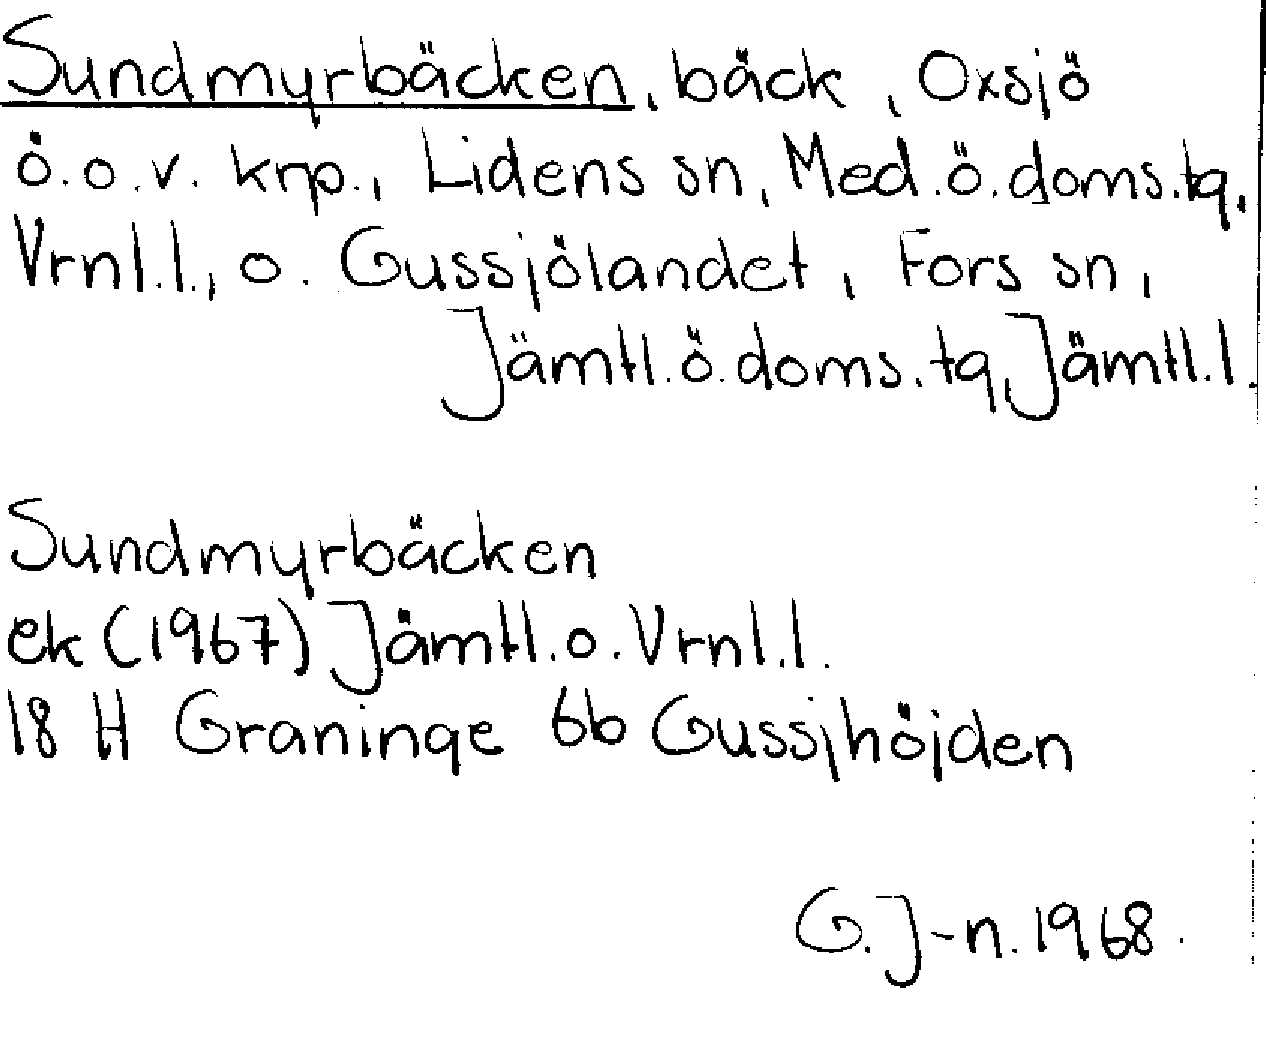 Sundmyrbäcken, bäck, Oxsjö
ö.o.v. krp., Lidens sn, Med.ö.doms.tg,
Vrnl.l., o. Gussjölandet, Fors sn,
Jämtl.ö.doms.tg, Jämtl.l.
Sundmyrbäcken
ek (1967) Jämtl.o.Vrnl.l.
18 H Graninge 6b Gussjhöjden
G.J-n. 1968.